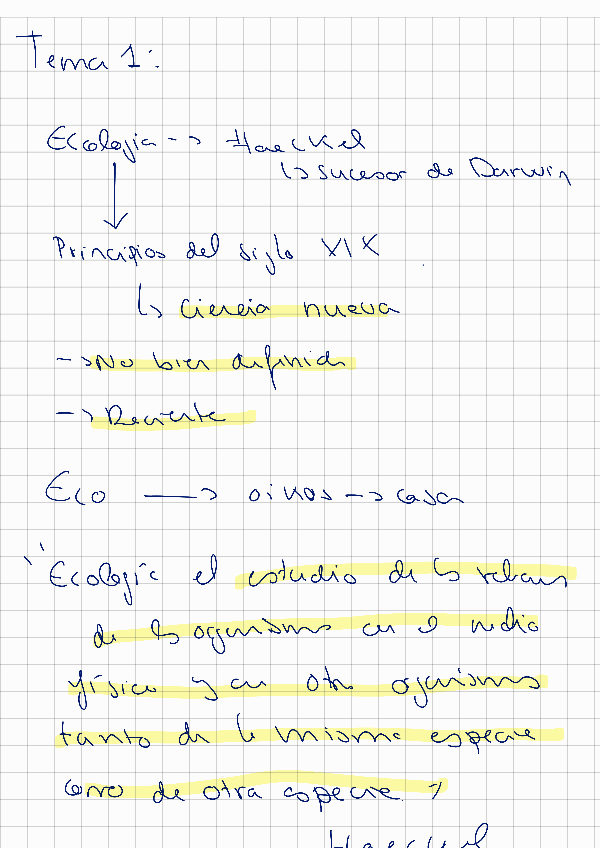 Tema 1:
Ecología --> Haeckel
↳ sucesor de Darwin
Principios del siglo XIX
↳ Ciencia nueva
-> No bien definida
-> Reciente
Eco —> oikos -> casa
"Ecología el estudio de las relaciones
de los organismos con el medio
físico y con otros organismos
tanto de la misma especie
como de otra especie."
Haeckel